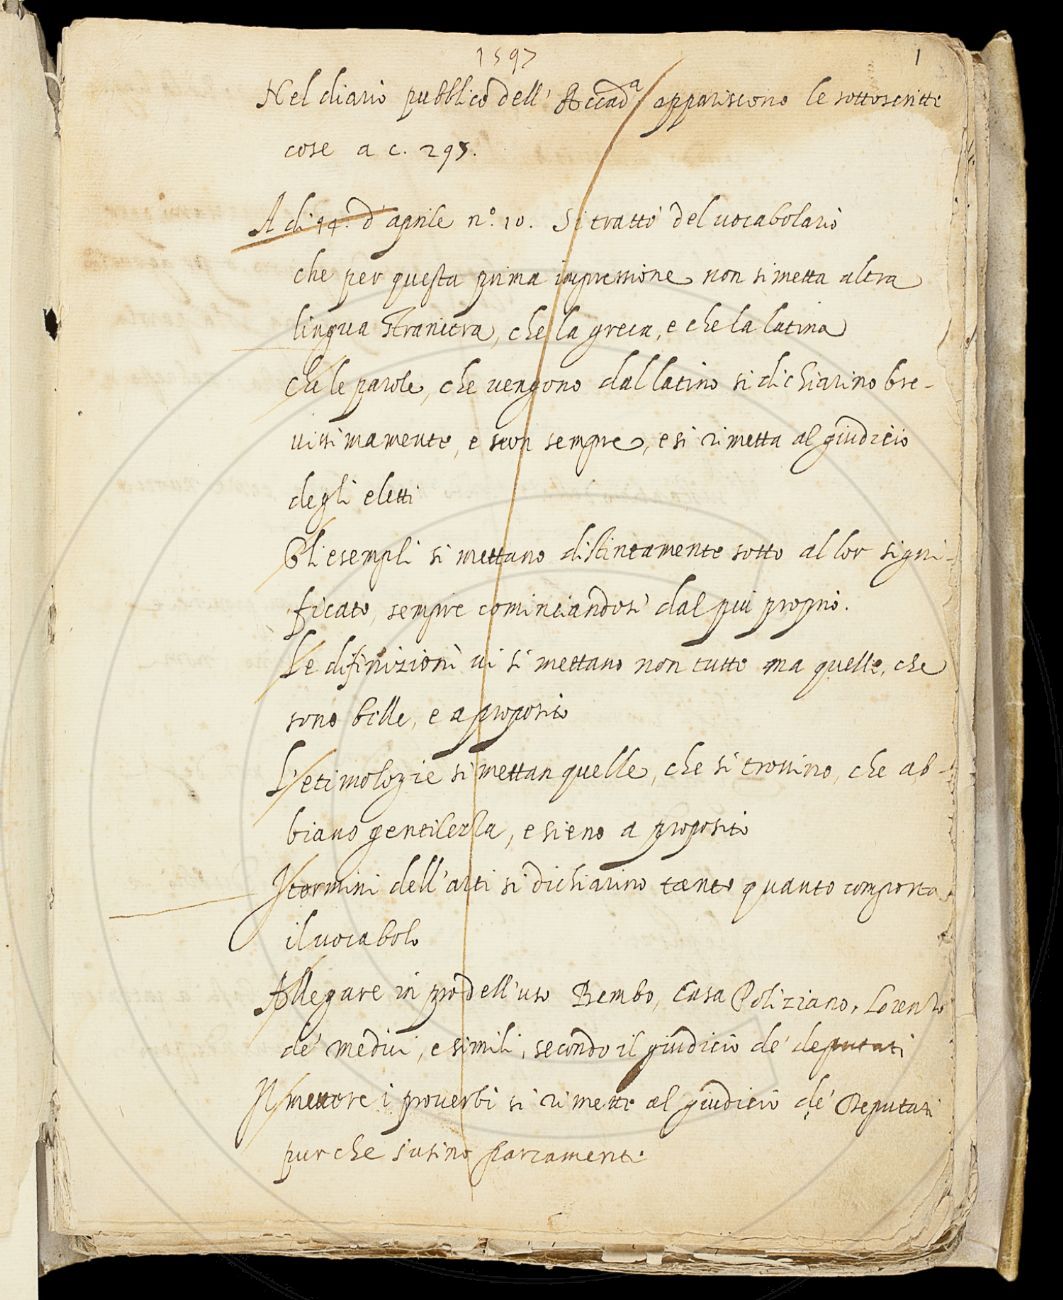 1597
1
Nel diario pubblico dell' Accad.a appariscono le sottoscritte
cose a c. 295.
A di 14. d'aprile n.o 10. Si trattò del uocabolario
che per questa prima impressione non si metta altra
lingua straniera, che la greca, e che la latina
che le parole, che vengono dal latino si dichiarino bre-
uissimamente, e non sempre, e si rimetta al giudicio
degli eletti
Gli esempli si mettano distintamente sotto al lor signi-
ficato, sempre cominciandosi dal piu proprio.
Le difinizioni ui si mettano non tutte ma quelle, che
sono belle, e a proposito
L'etimologie si mettan quelle, che si trouino, che ab-
biano gentilezza, e sieno a proposito
I termini dell'arti si dichiarino tanto quanto comporta
il uocabolo
Allegare in pro dell'uso Bembo, Casa Poliziano, Lorenzo
de' Medici, e simili, secondo il giudicio de' deputati
Il mettere i prouerbi si rimette al giudicio de' Deputati
purche s'usino scarsamente